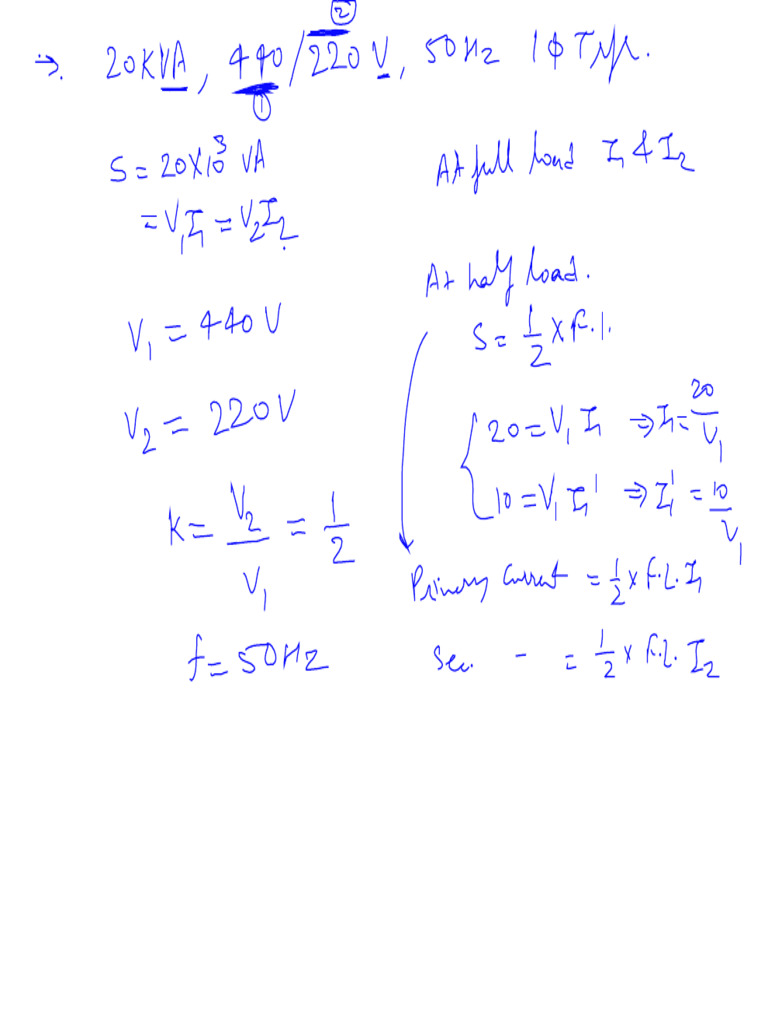 ⇒. 20KVA, 440/220V, 50Hz 1ϕ T/f.
②
①
S = 20×10³ VA
= V₁I₁ = V₂I₂
V₁ = 440V
V₂ = 220V
K = V₂/V₁ = 1/2
f = 50Hz
At full load I₁ & I₂
At half load.
S = 1/2 × f.l.
20 = V₁ I₁ ⇒ I₁ = 20/V₁
10 = V₁ I₁' ⇒ I₁' = 10/V₁
Primary Current = 1/2 × f.L. I₁
Sec. - = 1/2 × f.L. I₂